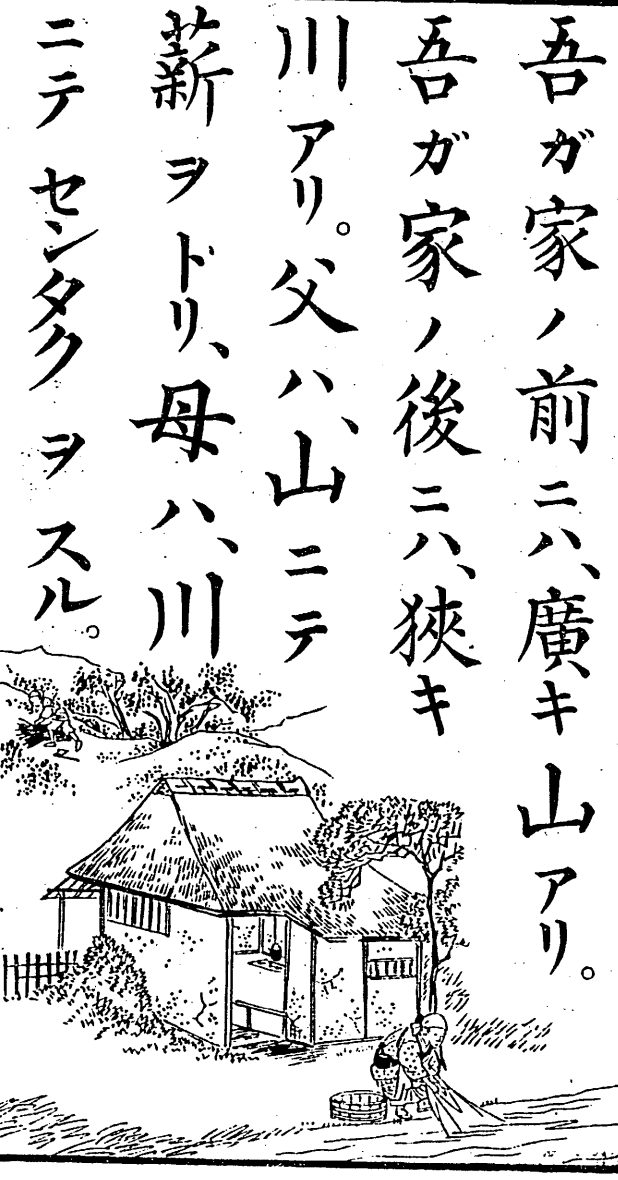 吾ガ家ノ前ニハ、廣キ山アリ。
吾ガ家ノ後ニハ、狹キ
川アリ。父ハ、山ニテ
薪ヲドリ、母ハ、川
ニテセンタクヲスル。